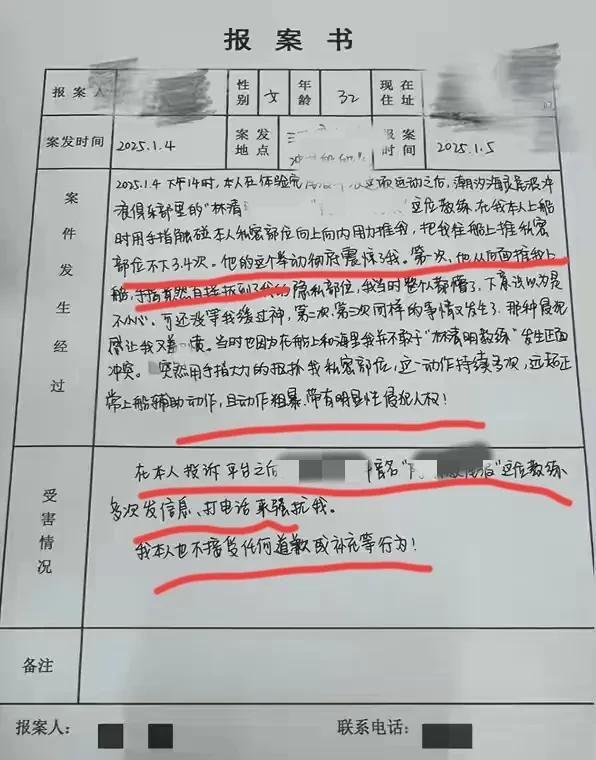 报案书
报案人
性别 女 年龄 32 现在住址
案发时间 2025.1.4 案发地点 报案时间 2025.1.5
案件发生经过
2025.1.4 下午14时,本人在体验完 这项运动之后,潮汐海灵岛店冲
浪俱乐部里的“林清 这位教练,在我本人上船
时用手指触碰本人私密部位向上向内用力推我,把我往船上推私密
部位不下3.4次。他的这个举动彻底震惊了我。第一次,他从后面推我上
船,手指竟然直接抠到了我的隐私部位,我当时整个人都懵了,下意识以为是
不小心。可还没等我缓过神,第二次、第三次同样的事情又发生了,那种侵犯
感让我又羞 愤。当时也因为在船上和海里我并不敢于“林清明教练”发生正面
冲突。 突然用手指大力的 我私密部位,这一动作持续多次,远超正
常上船辅助动作,且动作粗暴、带有明显性侵犯人权!
受害情况
在本人投诉平台之后 名“ ”这位教练
多次发信息、打电话来骚扰我。
我本人也不接受任何道歉或补充等行为!
备注
报案人: 联系电话: